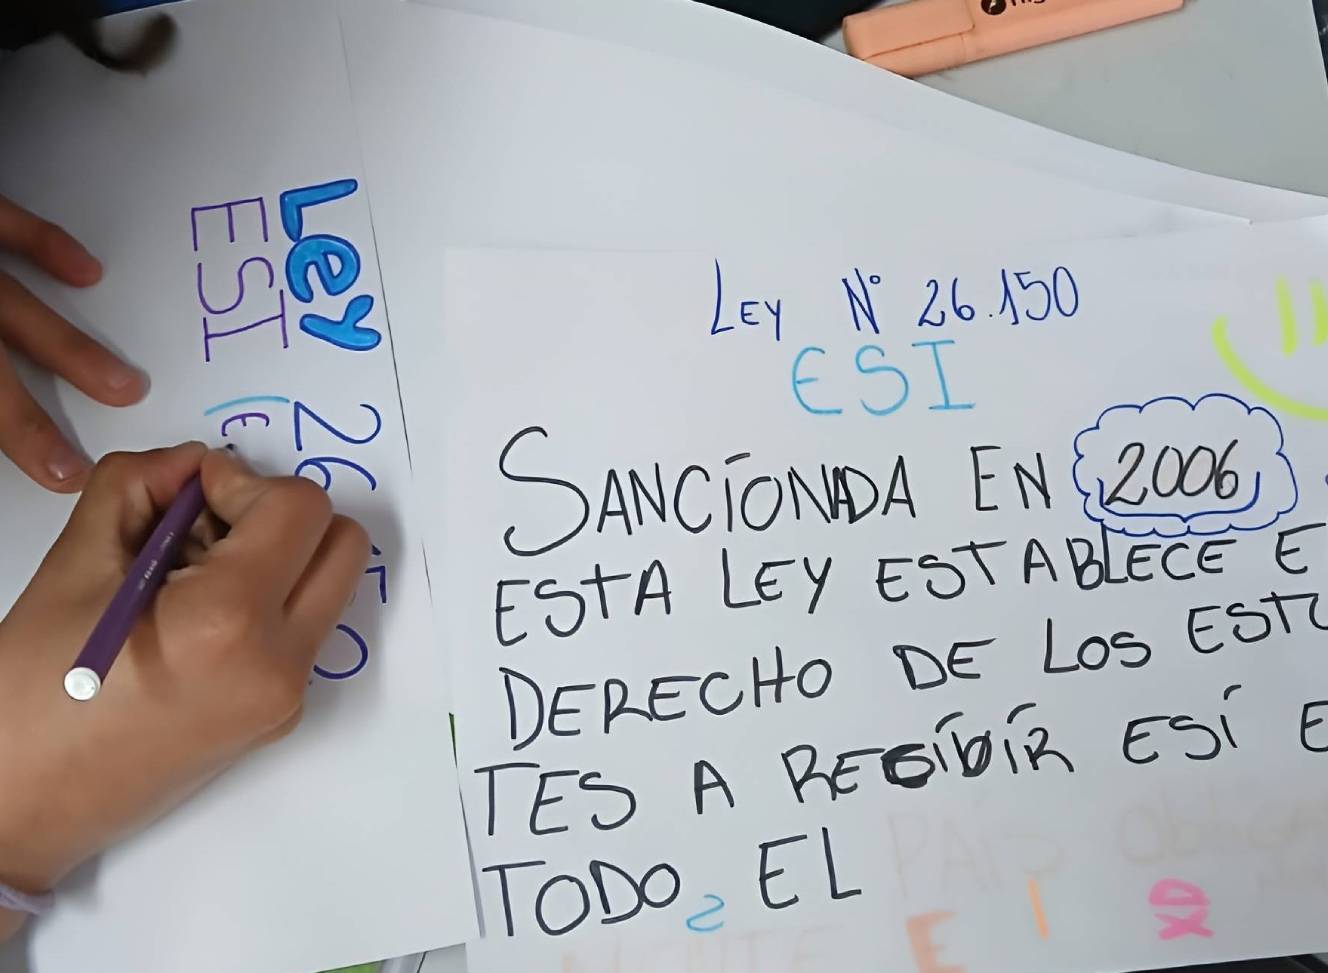 Ley 26
ESI (E
LEY N° 26.150
ESI
SANCIONADA EN 2006
ESTA LEY ESTABLECE E
DERECHO DE LOS ESTU
TES A RECIBIR ESI E
TODO EL PAIS